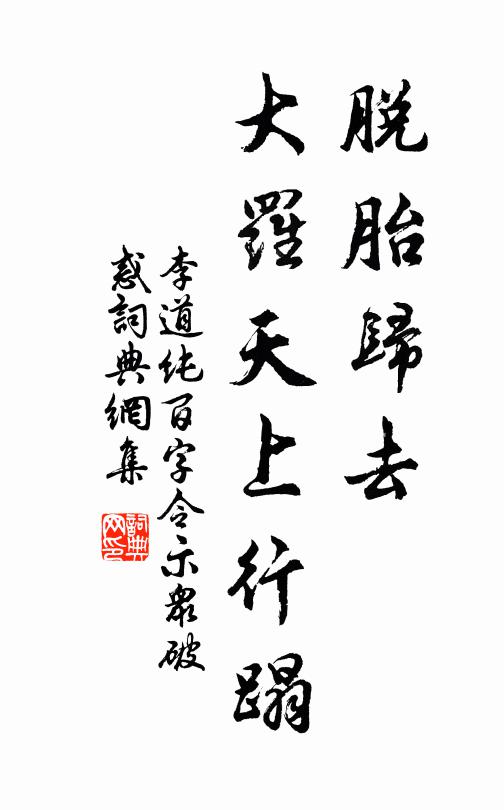 脱胎歸去
大羅天上行蹋
李道纯百字令示眾破
惑詞典網集
詞典网印